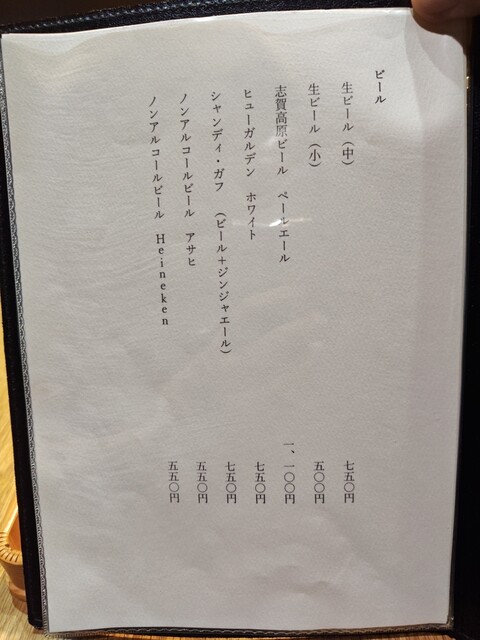 ビール
生ビール（中） 七五〇円
生ビール（小） 五〇〇円
志賀高原ビール ペールエール 一、一〇〇円
ヒューガルデン ホワイト 七五〇円
シャンディ・ガフ （ビール＋ジンジャエール） 七五〇円
ノンアルコールビール アサヒ 五五〇円
ノンアルコールビール Heineken 五五〇円